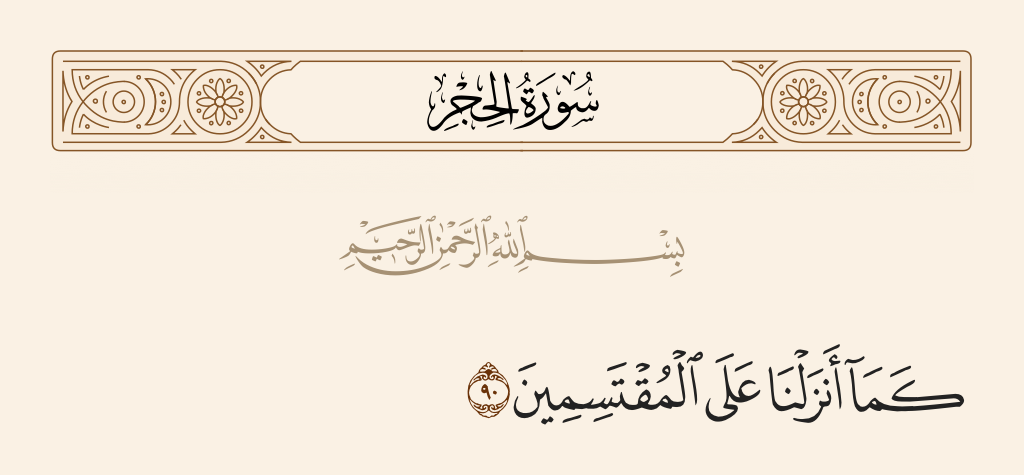 سُورَةُ الحِجْرِ
بِسْمِ ٱللَّهِ ٱلرَّحْمَٰنِ ٱلرَّحِيمِ
كَمَآ أَنزَلْنَا عَلَى ٱلْمُقْتَسِمِينَ ٩٠